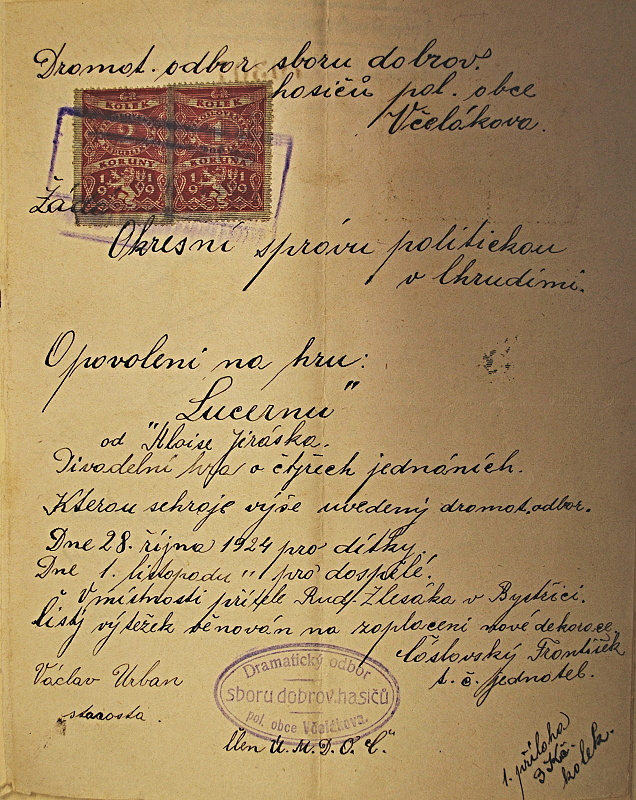 Dramat. odbor sboru dobrov.
hasičů pol. obce
Včelákova.
KOLEK KOLEK
2 1
KORUNY KORUNA
19 19 19 19
Žádá
Okresní správu politickou
v Chrudimi.
Opovolení na hru:
Lucernu"
od "Aloise Jiráska.
Divadelní hra o čtyřech jednáních.
Kterou sehraje výše uvedený dramat. odbor.
Dne 28. října 1924 pro dítky.
Dne 1. listopadu " pro dospělé.
V místnosti přítele Rud. Zlesáka v Bystřici.
čistý výtěžek věnován na zaplacení nové dekorace.
František
t. č. jednatel.
Václav Urban
starosta.
Dramatický odbor
sboru dobrov. hasičů
pol. obce Včelákova.
Člen Ú. M. D. O. Č."
1. příloha
3 Kč.
kolek.